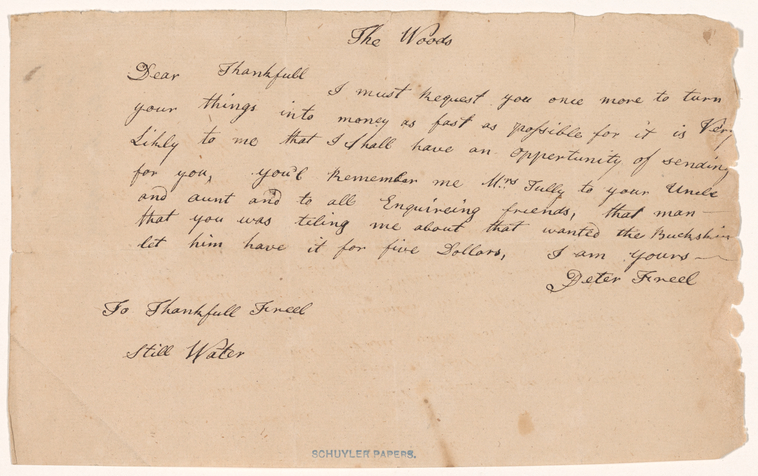 The Woods
Dear Thankfull
I must Request you once more to turn
your things into money as fast as possible for it is Very
Likly to me that I shall have an oppertunity of sending
for you, you'l Remember me Mrs Tully to your Uncle
and aunt and to all Enquireing friends, that man—
that you was teling me about that wanted the Buckskins
let him have it for five Dollars, I am yours—
Peter Freel
To Thankfull Freel
Still Water
SCHUYLER PAPERS.